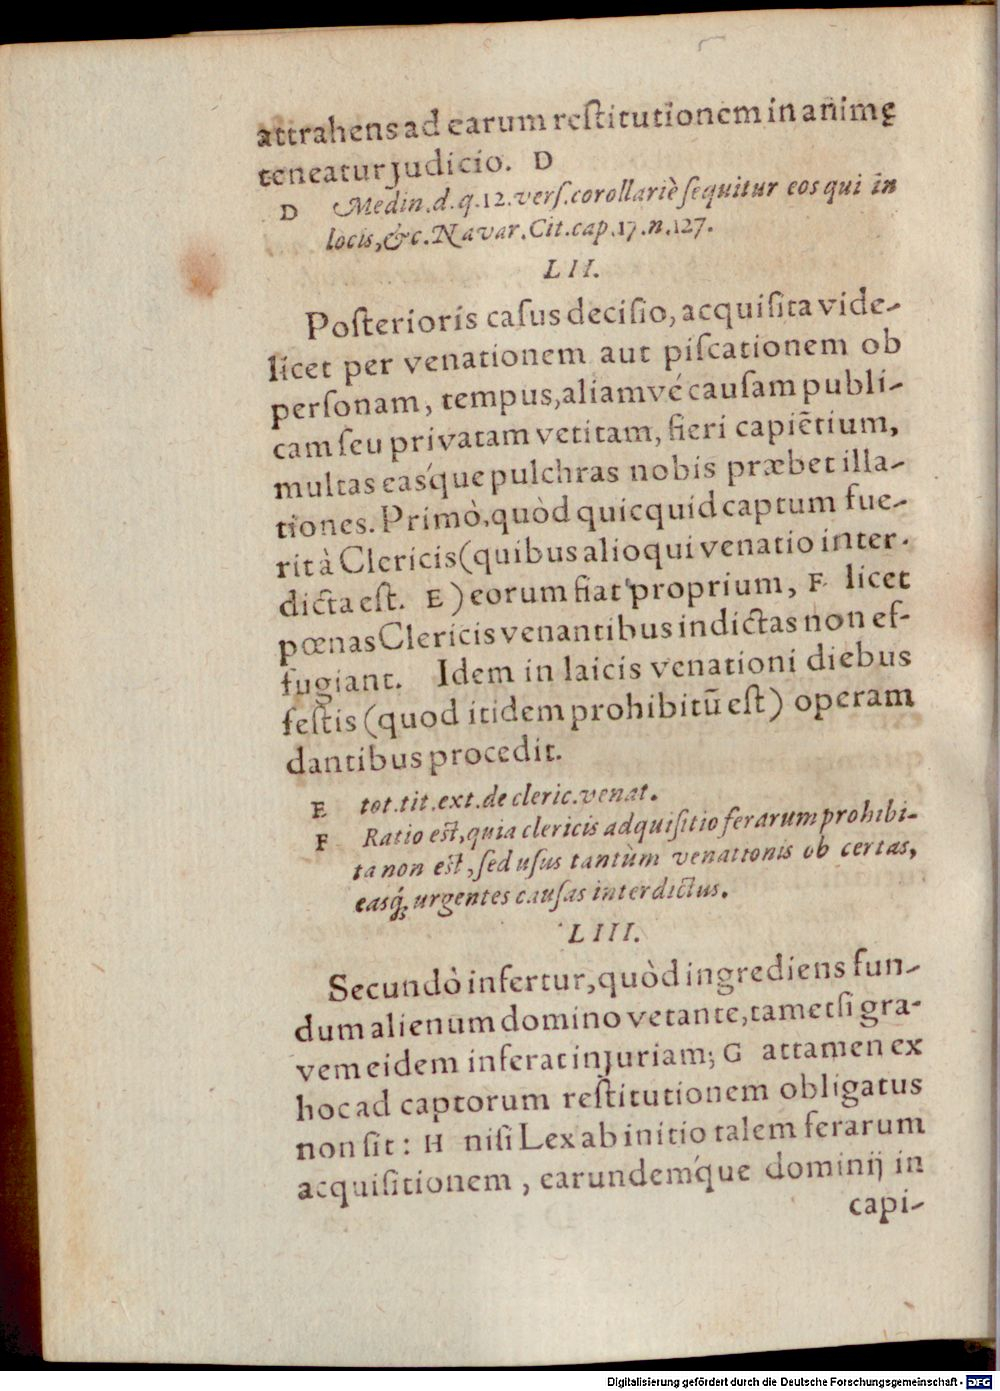 attrahens ad earum reſtitutionem in animę
teneatur judicio. D
D Medin. d. q. 12. verſ. corollariè ſequitur eos qui in
locis, &c. Navar. Cit. cap. 17. n. 127.
LII.
Poſterioris caſus deciſio, acquiſita vide-
licet per venationem aut piſcationem ob
perſonam, tempus, aliamvé cauſam publi-
cam ſeu privatam vetitam, fieri capiẽtium,
multas eaſq́ue pulchras nobis præbet illa-
tiones. Primò, quòd quicquid captum fue-
rit à Clericis (quibus alioqui venatio inter-
dicta eſt. E ) eorum fiat proprium, F licet
pœnas Clericis venantibus indictas non ef-
fugiant. Idem in laicis venationi diebus
feſtis (quod itidem prohibitũ eſt) operam
dantibus procedit.
E tot. tit. ext. de cleric. venat.
F Ratio eſt, quia clericis adquiſitio ferarum prohibi-
ta non eſt, ſed uſus tantùm venationis ob certas,
easq́; urgentes cauſas interdictus.
LIII.
Secundò infertur, quòd ingrediens fun-
dum alienum domino vetante, tametſi gra-
vem eidem inferat injuriam; G attamen ex
hoc ad captorum reſtitutionem obligatus
non ſit: H niſi Lex ab initio talem ferarum
acquiſitionem, earundemq́ue dominij in
capi-
Digitalisierung gefördert durch die Deutsche Forschungsgemeinschaft - DFG